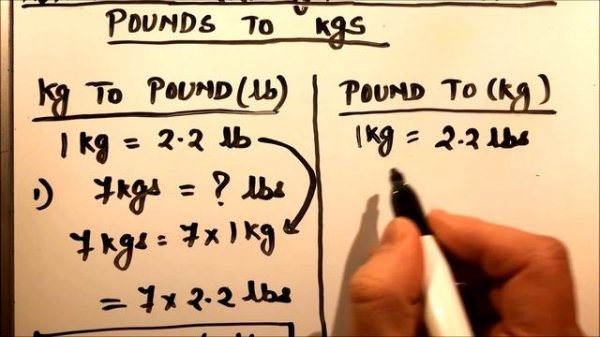 POUNDS TO kgs
Kg TO POUND (lb)
1 kg = 2.2 lb
1) 7kgs = ? lbs
7kgs = 7 x 1kg
= 7 x 2.2 lbs
POUND TO (kg)
1kg = 2.2 lbs